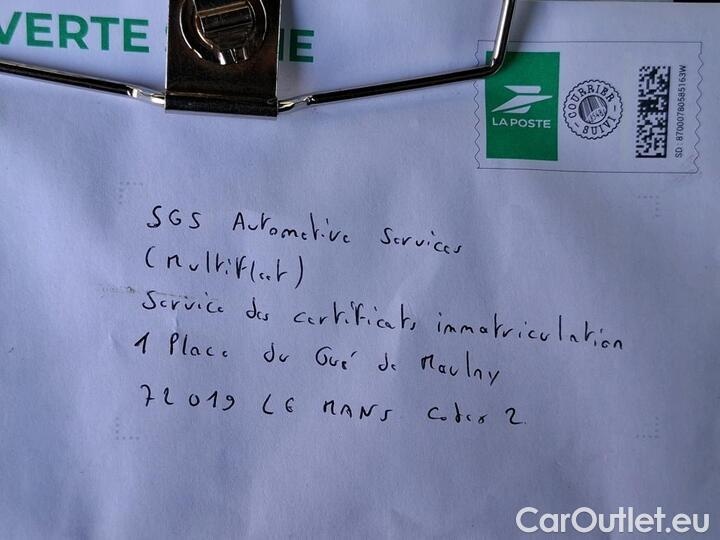 VERTE
LA POSTE
COURRIER SUIVI
SD : 87000780585163W
SGS Automotive Services
(Multifleet)
Service des certificats immatriculation
1 Place du Gué de Maulny
72019 LE MANS Cedex 2
CarOutlet.eu